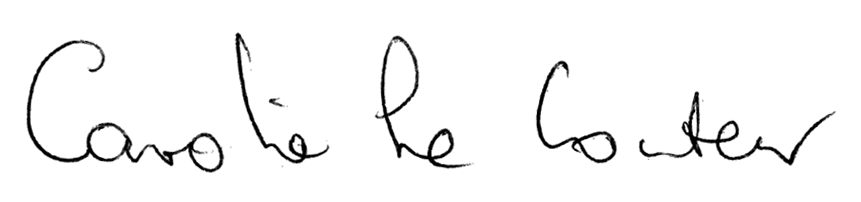 Caroline Le Couteur